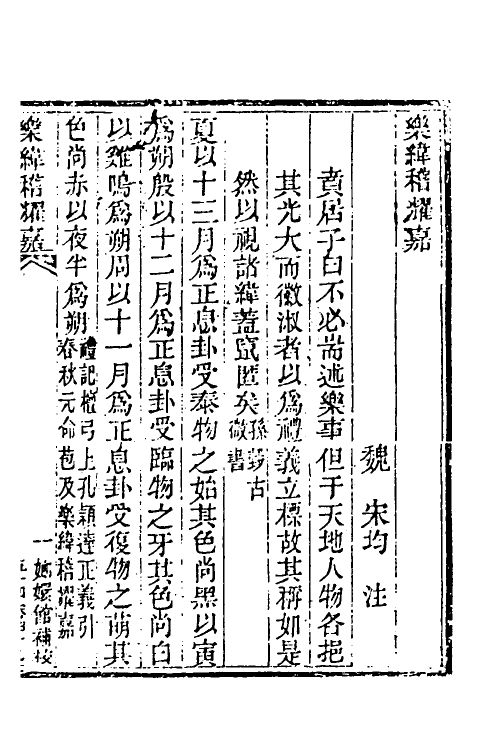 樂緯稽耀嘉
魏　宋均　注
賁居子曰不必耑述樂事但于天地人物各挹
其光大而徽淑者以為禮義立標故其稱如是
然以視諸緯蓋寡匹矣孫瑴古微書
夏以十三月為正息卦受泰物之始其色尚黑以寅
為朔殷以十二月為正息卦受臨物之牙其色尚白
以雞鳴為朔周以十一月為正息卦受復物之萌其
色尚赤以夜半為朔禮記檀弓上孔穎達正義引春秋元命苞及樂緯稽耀嘉
樂緯稽耀嘉
一
嫏嬛館補校